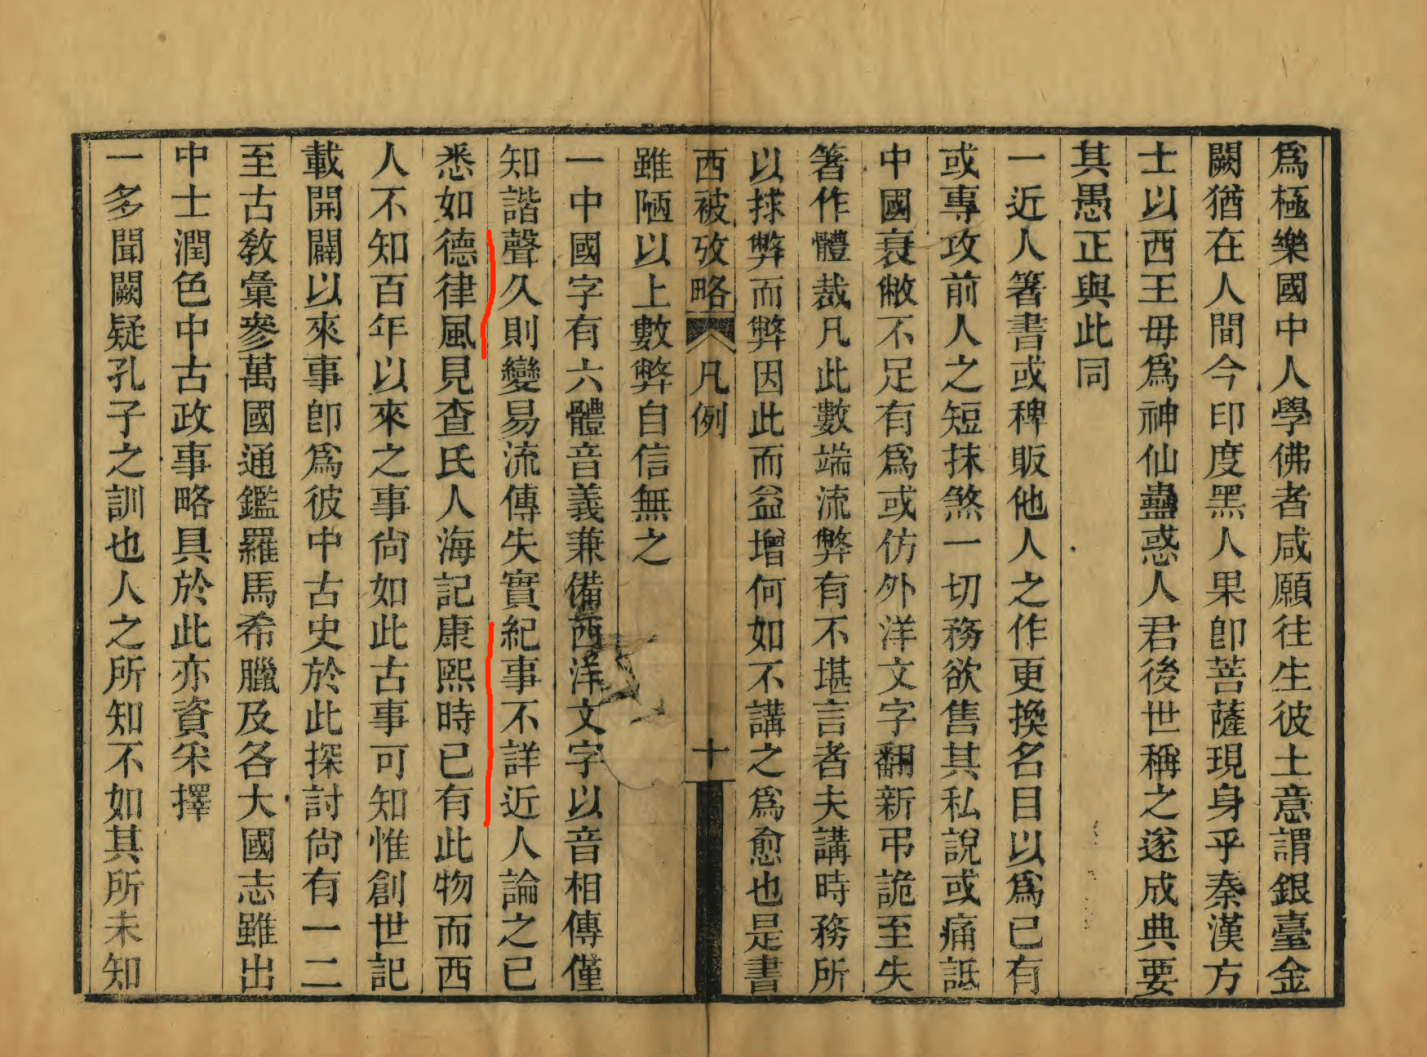 爲極樂國中人學佛者咸願往生彼土意謂銀臺金
闕猶在人間今印度黑人果卽菩薩現身乎秦漢方
士以西王毋爲神仙蠱惑人君後世稱之遂成典要
其愚正與此同
一近人箸書或稗販他人之作更換名目以爲已有
或專攻前人之短抹煞一切務欲售其私說或痛詆
中國衰敝不足有爲或仿外洋文字翻新弔詭至失
箸作體裁凡此數端流弊有不堪言者夫講時務所
以捄弊而弊因此而益增何如不講之爲愈也是書
西被攷略 凡例 十
雖陋以上數弊自信無之
一中國字有六體音義兼備西洋文字以音相傳僅
知諧聲久則變易流傳失實紀事不詳近人論之已
悉如德律風見查氏人海記康熙時已有此物而西
人不知百年以來之事尙如此古事可知惟創世記
載開闢以來事卽爲彼中古史於此探討尙有一二
至古敎彙參萬國通鑑羅馬希臘及各大國志雖出
中士潤色中古政事略具於此亦資宷擇
一多聞闕疑孔子之訓也人之所知不如其所未知